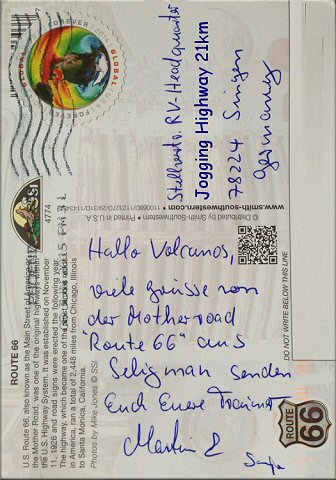 GLOBAL
FOREVER
Stellvertr. RV-Headquarter
Jogging Highway 21km
78224 Singen
Germany
Hallo Volcanos,
viele Grüsse von
der Motherroad
"Route 66" aus
Seligman senden
Euch Euere
Martin &
ROUTE 66
U.S. Route 66, also known as the Main Street of America or
the Mother Road, was one of the original highways within
the U.S. Highway System. It was established on November
11, 1926 and road signs were erected the following year.
The highway, which became one of the
America, ran a total of 2,448 miles from Chicago, Illinois
to Santa Monica, California.
Photos by Mike Jones © SSI
SSI
4774
© Distributed by Smith-Southwestern • Printed in U.S.A.
www.smith-southwestern.com
DO NOT WRITE BELOW THIS LINE
ROUTE
66